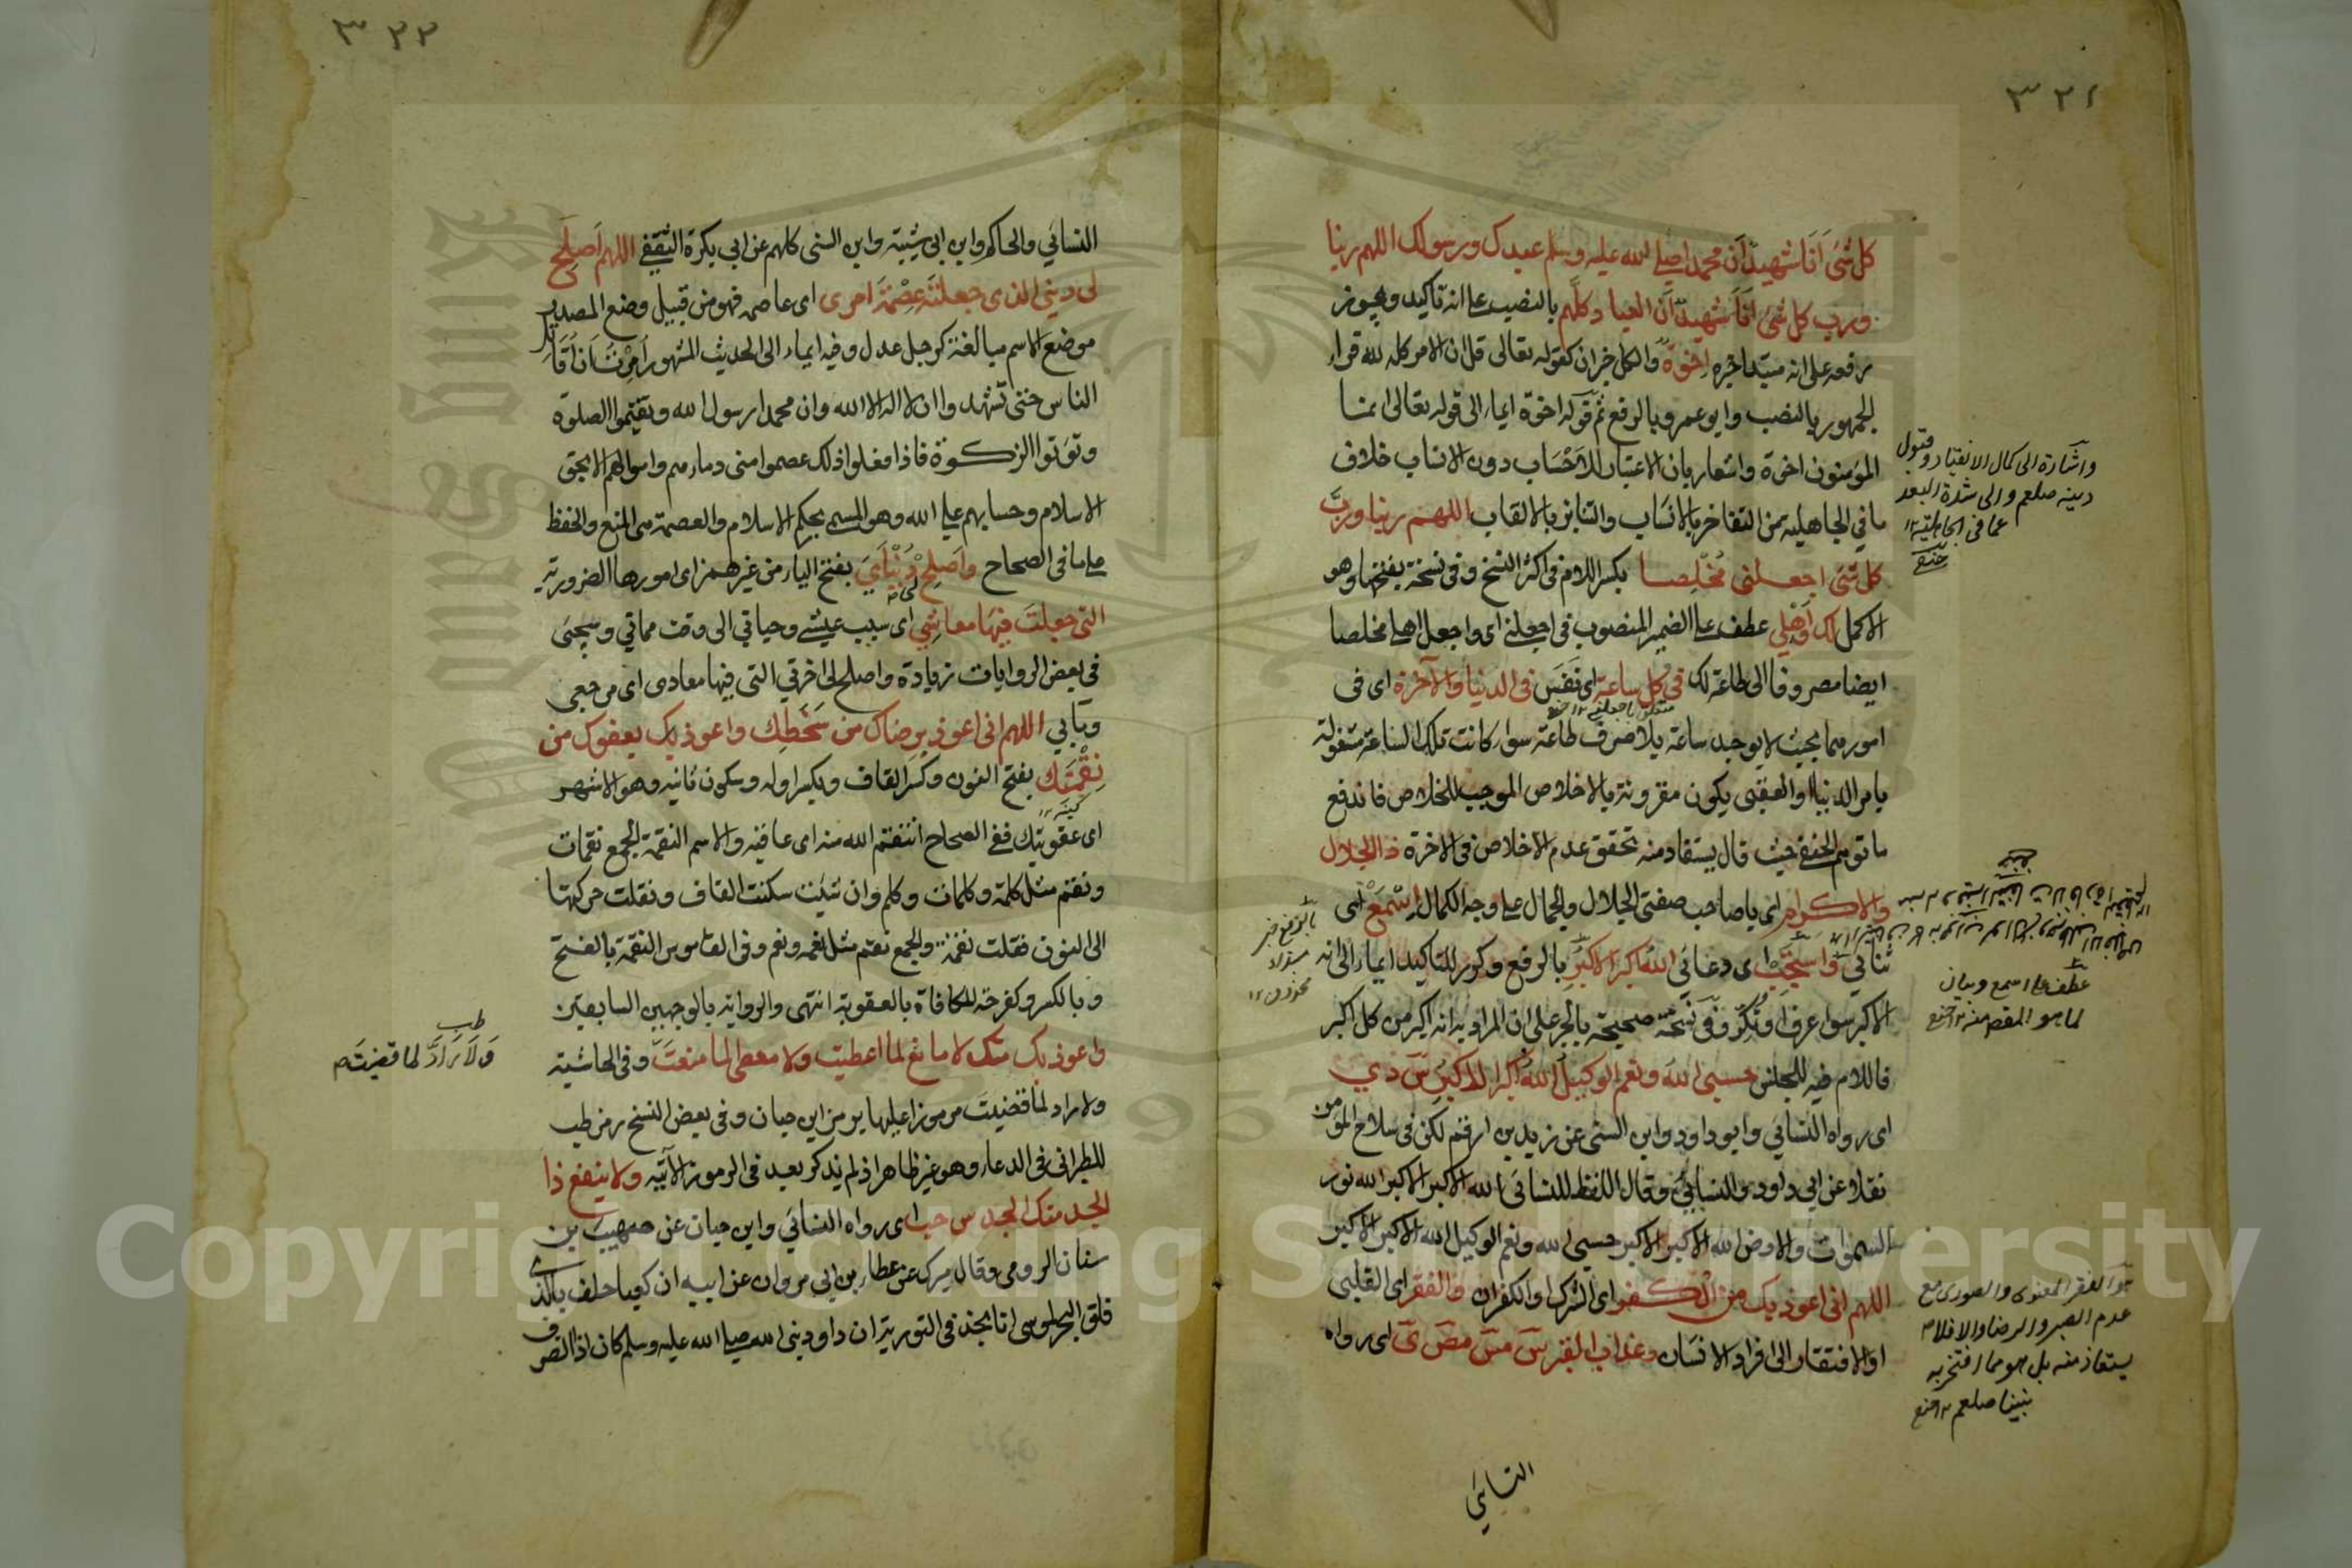 ٣٢١
كل شئ انا شهيد ان محمدا صلى الله عليه وسلم عبدك ورسولك اللهم ربنا
ورب كل شئ انا شهيد ان العباد كلهم بالنصب على انه تاكيد ويجوز
رفعه على انه مبتدا خبره اخوة والكل خبر ان كقوله تعالى قل ان الامر كله لله قراء
الجمهور بالنصب وابو عمرو بالرفع ثم قوله اخوة ايماء الى قوله تعالى انما
المؤمنون اخوة واشعار بان الاعتبار للاحساب دون الانساب خلاف
ما في الجاهلية من التفاخر بالانساب والتنابز بالالقاب اللهم ربنا ورب
كل شئ اجعلنى مخلصا بكسر اللام فى اكثر النسخ وفى نسخة بفتحها وهو
الاكمل لك واهلى عطف على الضمير المنصوب فى اجعلنى اى واجعل اهلى مخلصا
ايضا مصروفا الى طاعة لك فى كل ساعة اى نفس فى الدنيا والآخرة اى فى
امورهما بحيث لا يوجد ساعة بلا صرف طاعة سواء كانت تلك الساعة مشغولة
بامر الدنيا او العقبى يكون مقرونة بالاخلاص الموجب للخلاص فاندفع
ما توهم الحنفى حيث قال يستفاد منه تحقق عدم الاخلاص فى الاخرة ذا الجلال
والاكرام اى يا صاحب صفتى الجلال والجمال على وجه الكمال استمع اى
ثنائي واستجب اى دعائى الله اكبر الاكبر بالرفع وكرر للتاكيد ايماء الى انه
الاكبر سواء عرف او نكر وفى نسخة صحيحة بالجر على ان المراد به انه اكبر من كل اكبر
فاللام فيه للجنس حسبى الله ونعم الوكيل الله اكبر الاكبر س د ي
اى رواه النسائي وابو داود وابن السنى عن زيد بن ارقم لكن فى سلاح المؤمن
نقلا عن ابى داود والنسائي وقال اللفظ للنسائى الله الاكبر الاكبر الله نور
السموات والارض الله الاكبر الاكبر حسبى الله ونعم الوكيل الله الاكبر الاكبر
اللهم انى اعوذ بك من الكفر اى الشرك او الكفران والفقر اى القلبى
او الافتقار الى افراد الانسان وعذاب القبر س مس مص ى اى رواه
النسائي
واشارة الى كمال الانقياد وقبول
دينه صلعم والى شدة البعد
عما فى الجاهلية ١٢
متعلق باجعلنى ١٢
بالرفع خبر
مبتداء
محذوف ١٢
عطف على اسمع وبيان
لما هو المقصم منه ١٢
هو الفقر المعنوى والصورى مع
عدم الصبر والرضا والا فلا
يستعاذ منه بل هو مما افتخر به
نبينا صلعم ١٢
٣٢٢
النسائي والحاكم وابن ابى شيبة وابن السنى كلهم عن ابى بكرة الثقفى اللهم اصلح
لى دينى الذى جعلته عصمة امرى اى عاصمه فهو من قبيل وضع المصدر
موضع الاسم مبالغة كرجل عدل وفيه ايماء الى الحديث المشهور امرت ان اقاتل
الناس حتى تشهدوا ان لا اله الا الله وان محمدا رسول الله ويقيموا الصلوة
وتؤتوا الزكوة فاذا فعلوا ذلك عصموا منى دماءهم واموالهم الا بحق
الاسلام وحسابهم على الله وهو المسمى بحكم الاسلام والعصمة هى المنع والحفظ
على ما فى الصحاح واصلح لى دنياي بفتح الياء من غير همز اى امورها الضرورية
التى جعلت فيها معاشى اى سبب عيشى وحياتي الى وقت مماتي وسيجئ
فى بعض الروايات زيادة واصلح لى اخرتي التى فيها معادى اى مرجعى
ومآبي اللهم انى اعوذ برضاك من سخطك واعوذ بك بعفوك من
نقمتك بفتح النون وكسر القاف وبكسر اوله وسكون ثانيه وهو الاشهر
اى عقوبتك ففى الصحاح انتقم الله منه اى عاقبه والاسم النقمة الجمع نقمات
ونقم مثل كلمة وكلمات وكلم وان شئت سكنت القاف ونقلت حركتها
الى النون فقلت نقمة والجمع نقم مثل نعمة ونعم وفى القاموس النقمة بالفتح
وبالكسر وكفرحة المكافاة بالعقوبة انتهى والرواية بالوجهين السابقين
واعوذ بك منك لا مانع لما اعطيت ولا معطى لما منعت وفى الحاشية
ولا راد لما قضيت مرموزا عليها برمز ابن حبان وفى بعض النسخ رمز طب
للطبرانى فى الدعاء وهو غير ظاهر اذ لم يذكر بعد فى الرموز الآتية ولا ينفع ذا
الجد منك الجد س حب اى رواه النسائي وابن حبان عن صهيب بن
سنان الرومى وقال ميرك عن عطاء بن ابى مروان عن ابيه ان كعبا حلف بالذى
فلق البحر لموسى انا نجد فى التورية ان داود نبى الله صلى الله عليه وسلم كان اذا انصرف
طب
ولا راد لما قضيت
Copyright © King Saud University
1957